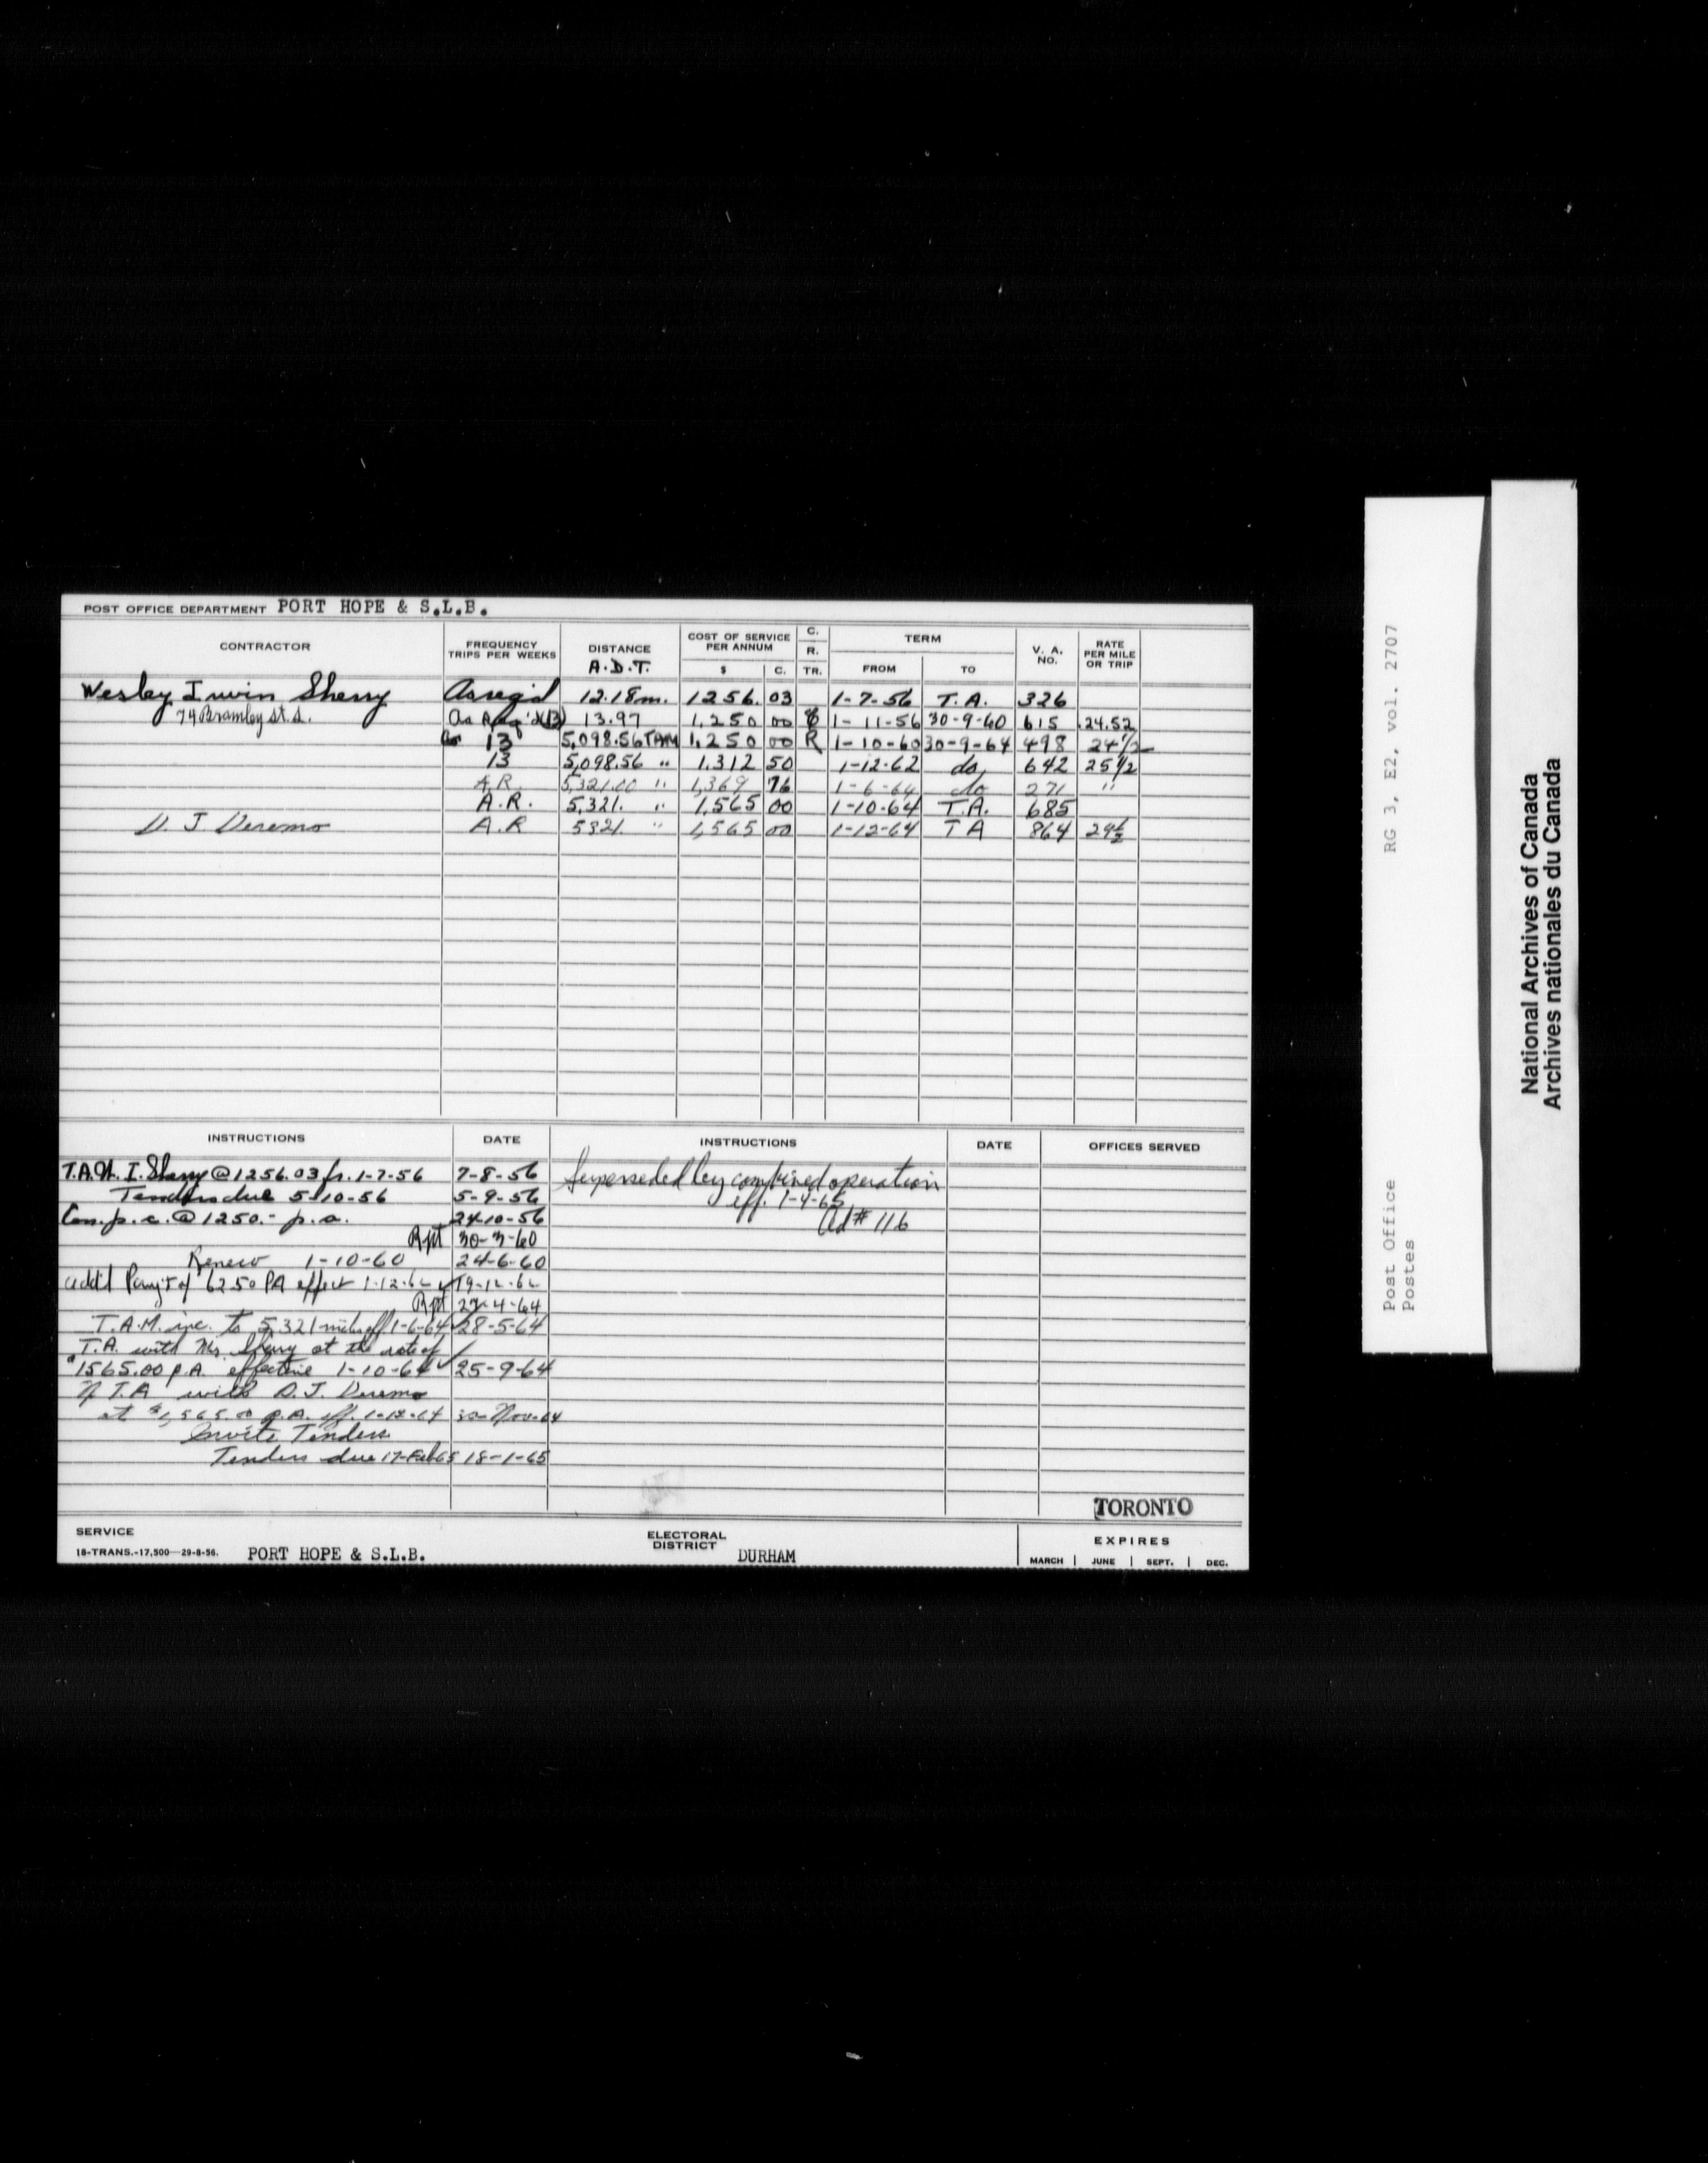 POST OFFICE DEPARTMENT PORT HOPE & S.L.B.
CONTRACTOR FREQUENCY TRIPS PER WEEKS DISTANCE A.D.T. COST OF SERVICE PER ANNUM $ C. C. R. TR. TERM FROM TO V. A. NO. RATE PER MILE OR TRIP
Wesley Irwin Sherry As req'd 12.18m. 1256.03 1-7-56 T.A. 326
74 Bramley St. S. As Req'd (13) 13.97 1,250 00 1-11-56 30-9-60 615 .24.52
13 5,098.56 TAM 1,250 00 R 1-10-60 30-9-64 498 24 1/2
13 5,098.56 " 1,312 50 1-12-62 do 642 25 1/2
A.R. 5,321.00 " 1,369 76 1-6-64 do 271 "
A.R. 5,321. " 1,565 00 1-10-64 T.A. 685
D. J. Deremo A.R 5321 " 1,565 00 1-12-64 T A 864 29 1/2
INSTRUCTIONS DATE INSTRUCTIONS DATE OFFICES SERVED
T.A. W. I. Sherry @ 1256.03 fr. 1-7-56 7-8-56 Superseded by combined operation
Tenders due 5-10-56 5-9-56 eff. 1-4-65
Con. p.c. @ 1250.- p.a. 24-10-56 Ad # 116
Rpt 30-3-60
Renew 1-10-60 24-6-60
Add'l Paym't of 62.50 PA effect 1-12-62 19-12-62
Rpt 27-4-64
T.A.M. inc. to 5,321 miles eff 1-6-64 28-5-64
T.A. with Mr. Sherry at the rate of
$1565.00 p.A. effective 1-10-64 25-9-64
T.A with D.J. Deremo
at $1,565.00 p.a. eff. 1-12-64 Nov-64
Invite Tenders
Tenders due 17-Feb 65 18-1-65
TORONTO
SERVICE ELECTORAL DISTRICT EXPIRES
18-TRANS.-17,500—29-8-56. PORT HOPE & S.L.B. DURHAM MARCH | JUNE | SEPT. | DEC.
RG 3, E2, vol. 2707
Post Office
Postes
National Archives of Canada
Archives nationales du Canada